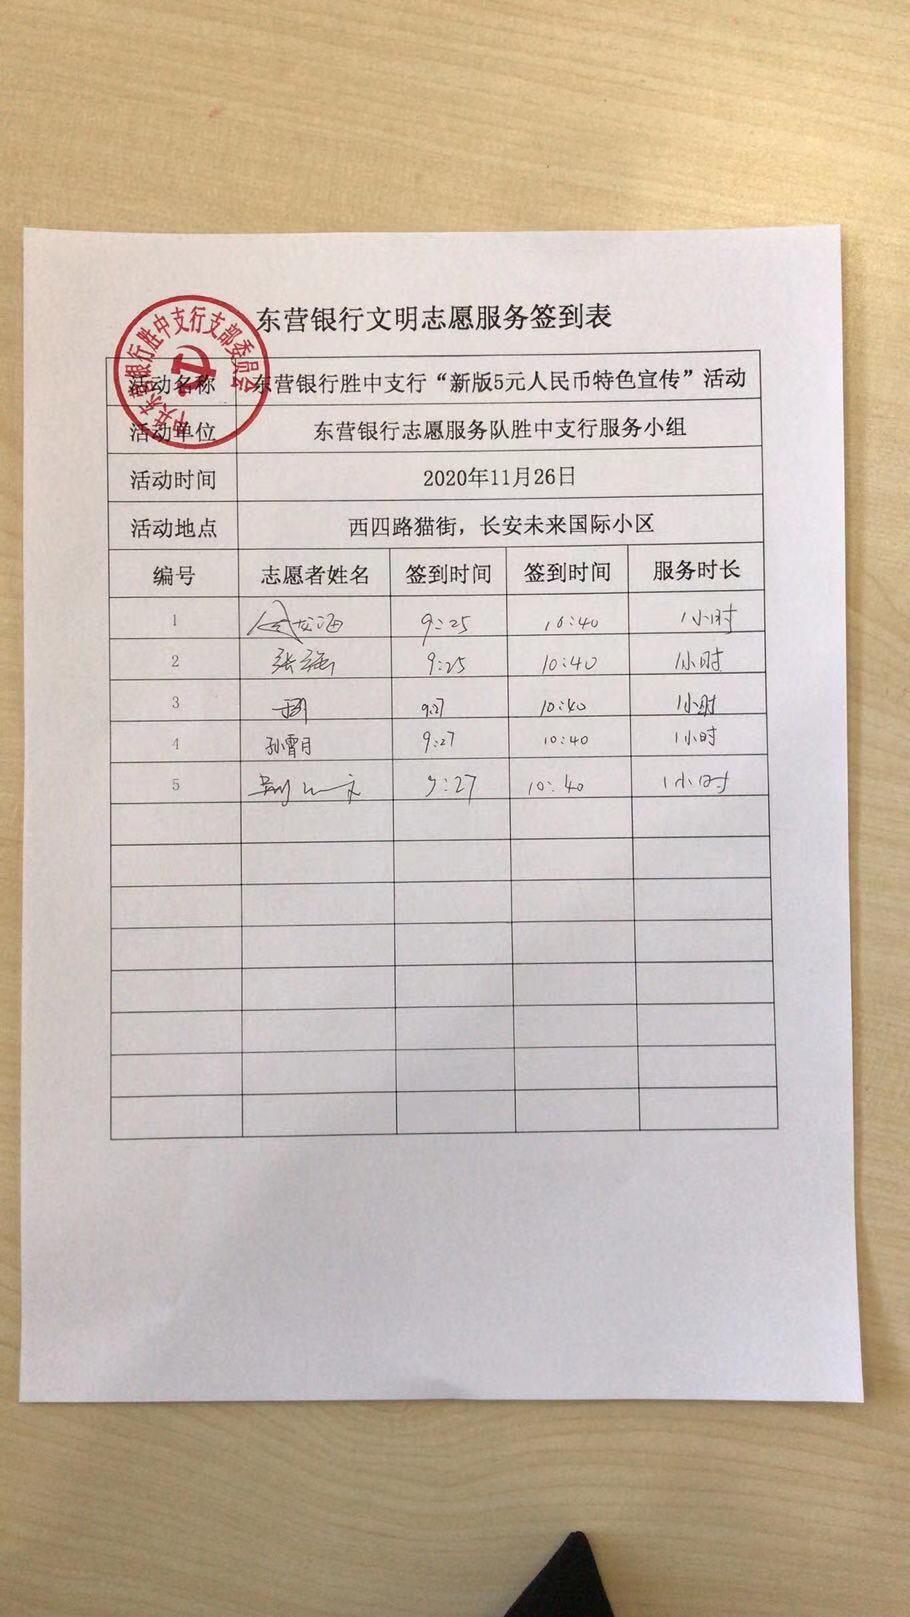 东营银行文明志愿服务签到表
中共东营银行胜中支行支部委员会
活动名称 东营银行胜中支行“新版5元人民币特色宣传”活动
活动单位 东营银行志愿服务队胜中支行服务小组
活动时间 2020年11月26日
活动地点 西四路猫街，长安未来国际小区
编号 志愿者姓名 签到时间 签到时间 服务时长
1 9:25 10:40 1小时
2 张 9:25 10:40 1小时
3 9:27 10:40 1小时
4 孙霄月 9:27 10:40 1小时
5 9:27 10:40 1小时